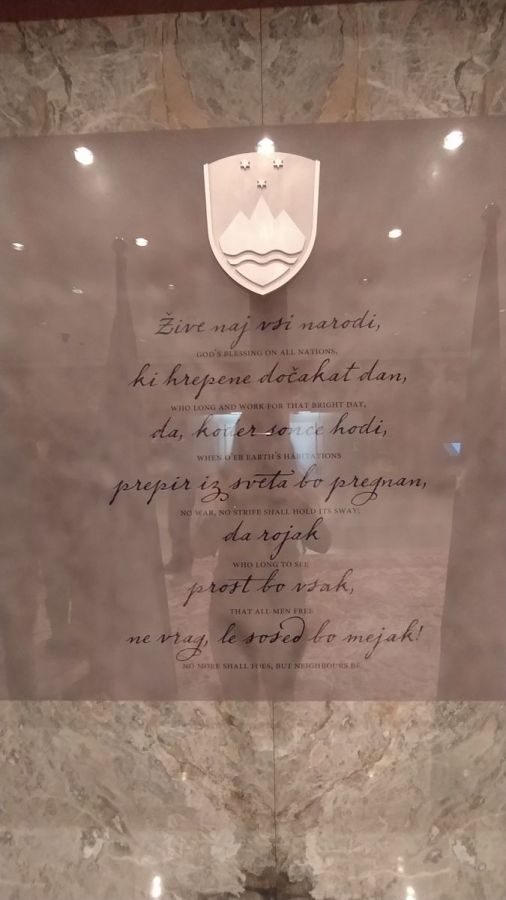 Žive naj vsi narodi,
GOD'S BLESSING ON ALL NATIONS,
ki hrepene dočakat dan,
WHO LONG AND WORK FOR THAT BRIGHT DAY,
da, koder sonce hodi,
WHEN O'ER EARTH'S HABITATIONS
prepir iz sveta bo pregnan,
NO WAR, NO STRIFE SHALL HOLD ITS SWAY;
da rojak
WHO LONG TO SEE
prost bo vsak,
THAT ALL MEN FREE
ne vrag, le sosed bo mejak!
NO MORE SHALL FOES, BUT NEIGHBOURS BE.